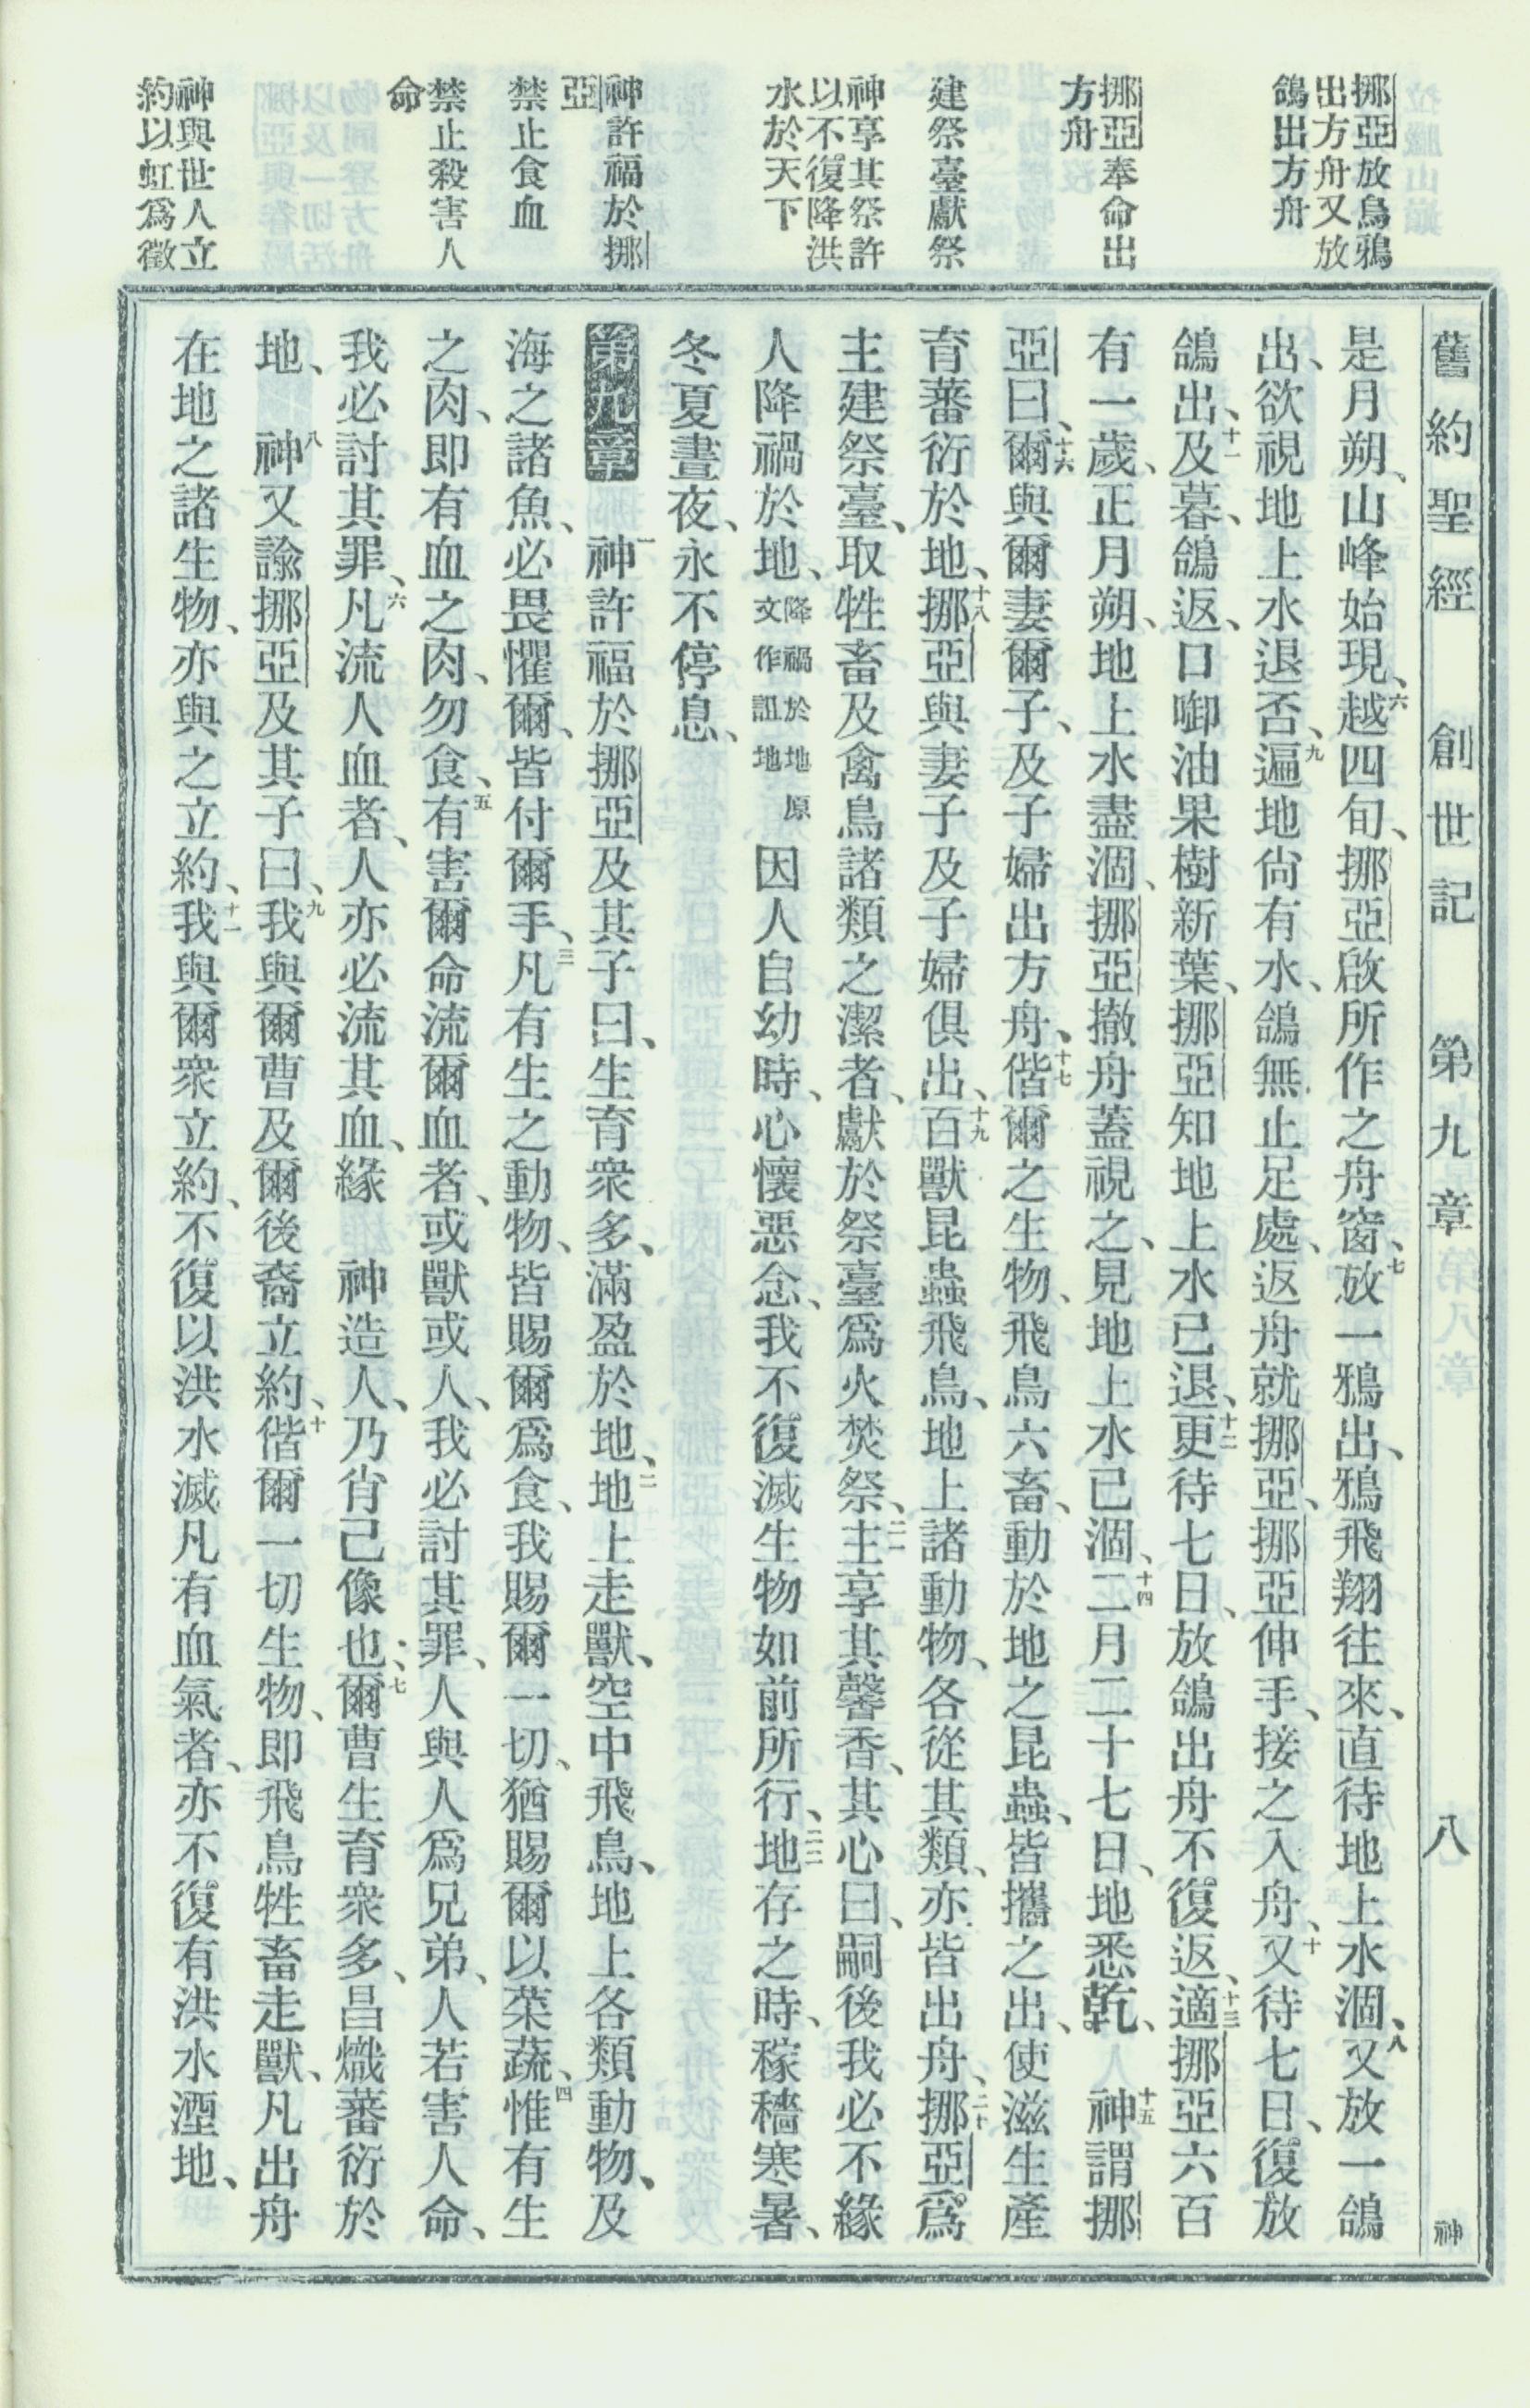 舊約聖經　創世記　第九章　八　神
挪亞放烏鴉
出方舟又放
鴿出方舟
挪亞奉命出
方舟
建祭臺獻祭
神享其祭許
以不復降洪
水於天下
神許福於挪
亞
禁止食血
禁止殺害人
命
神與世人立
約以虹爲徵
是月朔、山峰始現、六越四旬、挪亞啟所作之舟窗、七放一鴉出、鴉飛翔往來、直待地上水涸、八又放一鴿
出、欲視地上水退否、九遍地尙有水、鴿無止足處、返舟就挪亞、挪亞伸手、接之入舟、十又待七日、復放
鴿出、十一及暮、鴿返、口啣油果樹新葉、挪亞知地上水已退、十二更待七日、放鴿出舟不復返、十三適挪亞六百
有一歲、正月朔、地上水盡涸、挪亞撤舟蓋視之、見地上水已涸、十四二月二十七日、地悉乾、　十五神謂挪
亞曰、十六爾與爾妻爾子、及子婦出方舟、十七偕爾之生物、飛鳥六畜、動於地之昆蟲、皆攜之出、使滋生產
育蕃衍於地、十八挪亞與妻子及子婦俱出、十九百獸昆蟲飛鳥、地上諸動物、各從其類、亦皆出舟、二十挪亞爲
主建祭臺、取牲畜及禽鳥諸類之潔者、獻於祭臺爲火焚祭、二一主享其馨香、其心曰、嗣後我必不緣
人降禍於地、降禍於地原文作詛地因人自幼時、心懷惡念、我不復滅生物如前所行、二二地存之時、稼穡寒暑、
冬夏晝夜、永不停息、
第九章　一神許福於挪亞及其子曰、生育衆多、滿盈於地、二地上走獸、空中飛鳥、地上各類動物、及
海之諸魚、必畏懼爾、皆付爾手、三凡有生之動物、皆賜爾爲食、我賜爾一切、猶賜爾以菜蔬、四惟有生
之肉、即有血之肉、勿食、五有害爾命流爾血者、或獸或人、我必討其罪、人與人爲兄弟、人若害人命、
我必討其罪、六凡流人血者、人亦必流其血、緣　神造人、乃肖己像也、七爾曹生育衆多、昌熾蕃衍於
地、　八神又諭挪亞及其子曰、九我與爾曹及爾後裔立約、十偕爾一切生物、即飛鳥牲畜走獸、凡出舟
在地之諸生物、亦與之立約、十一我與爾衆立約、不復以洪水滅凡有血氣者、亦不復有洪水湮地、